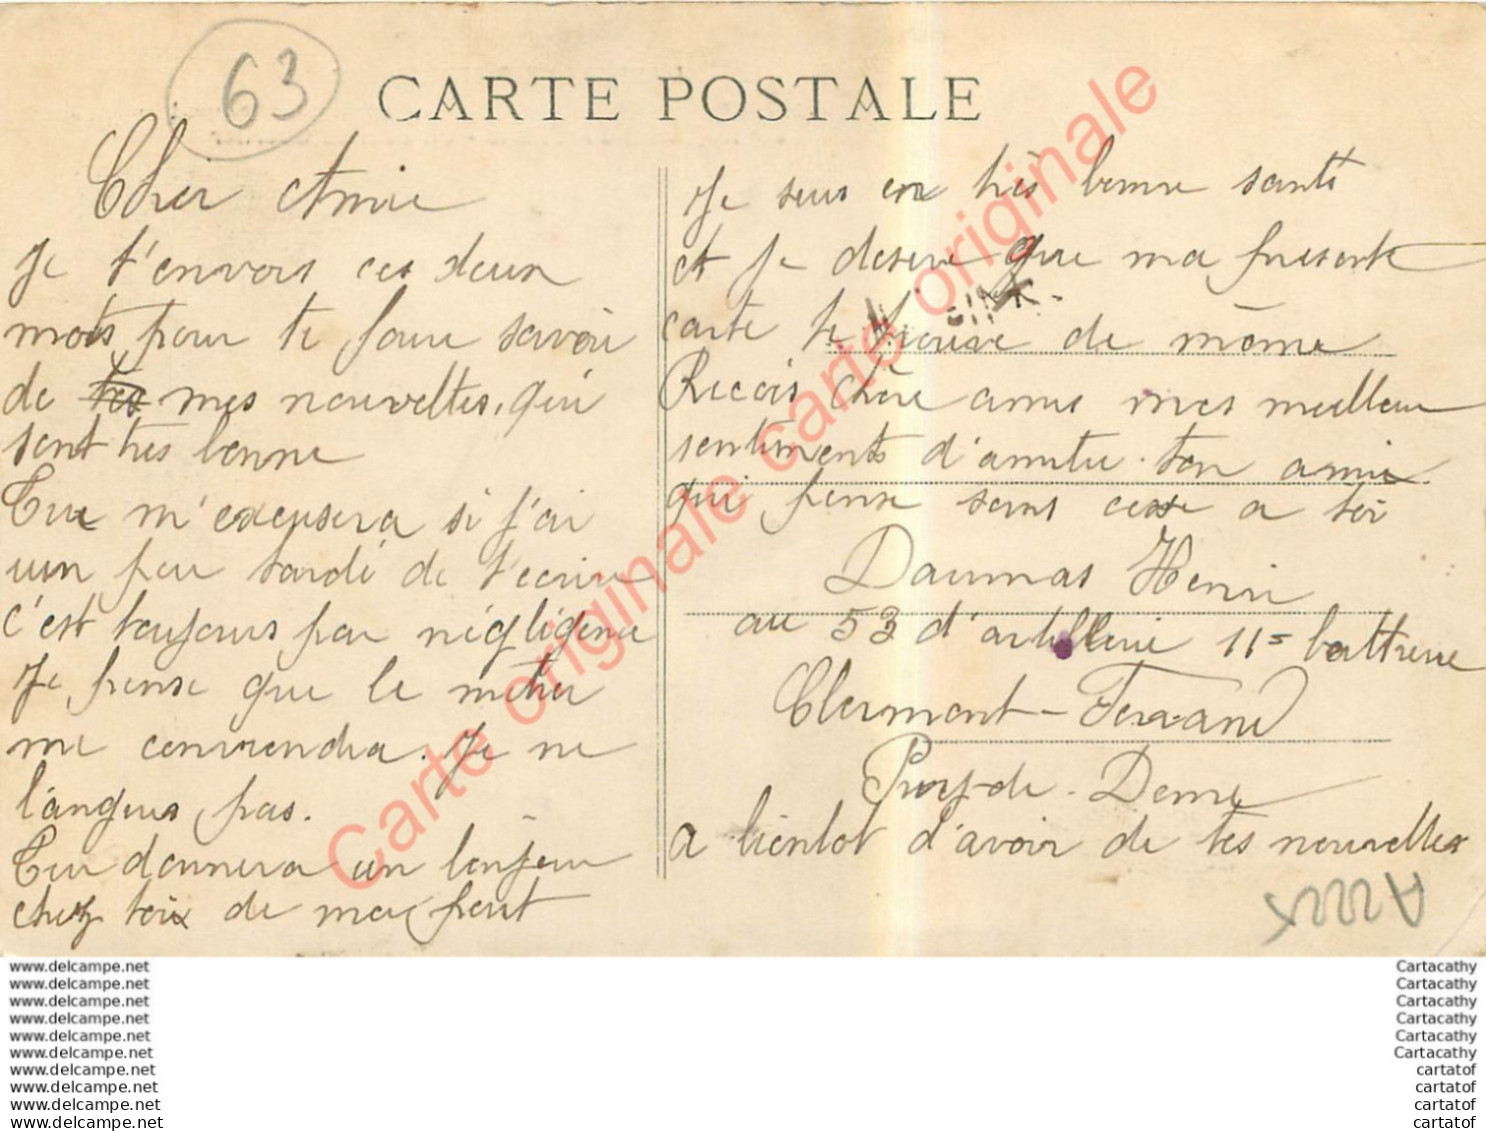 63
CARTE POSTALE
Cher Amie
Je t'envois ces deux
mots pour te faire savoir
de tes mes nouveltes, qui
sont tres bonne
Tu m'excusera si j'ai
un peu tardé de t'ecrire
c'est toujours par négligence
Je pense que le métier
me conviendra. Je ne
langui pas.
Tu donnera un bonjour
chez toix de ma part
Je suis en très bonne santé
et je desire que ma presente
carte te trouve de même
Recois chère amie mes meilleur
sentiments d'amitié ton amie
qui pense sans cesse a toi
Daumas Henri
au 53 d'artillerie 11e battrerie
Clermont-Ferrand
Puy-de-Dome
a bientot d'avoir de tes nouvelles
Carte originale carte originale
www.delcampe.net
www.delcampe.net
www.delcampe.net
www.delcampe.net
www.delcampe.net
www.delcampe.net
www.delcampe.net
www.delcampe.net
www.delcampe.net
www.delcampe.net
Cartacathy
Cartacathy
Cartacathy
Cartacathy
Cartacathy
Cartacathy
cartatof
cartatof
cartatof
cartatof